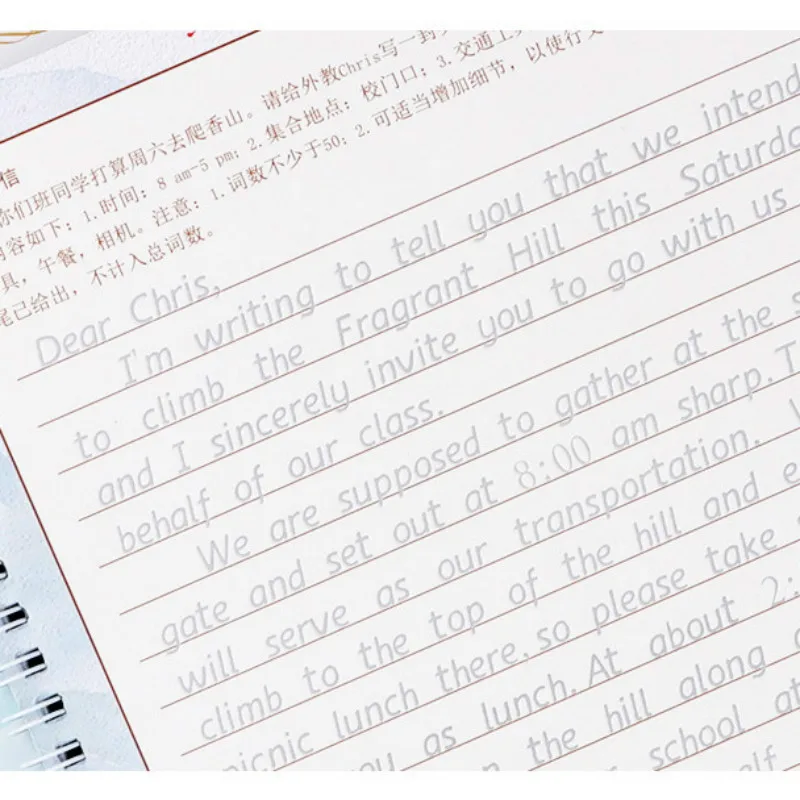 信
你们班同学打算周六去爬香山。请给外教Chris写一封
内容如下：1.时间：8 am-5 pm；2.集合地点：校门口；3.交通工具
具，午餐，相机。注意：1.词数不少于50；2.可适当增加细节，以使行文
尾已给出，不计入总词数。
Dear Chris,
I'm writing to tell you that we intend
to climb the Fragrant Hill this Saturday
and I sincerely invite you to go with us
behalf of our class.
We are supposed to gather at the
gate and set out at 8:00 am sharp.
will serve as our transportation.
climb to the top of the hill and
picnic lunch there, so please take
you as lunch. At about 2:
the hill along
school at